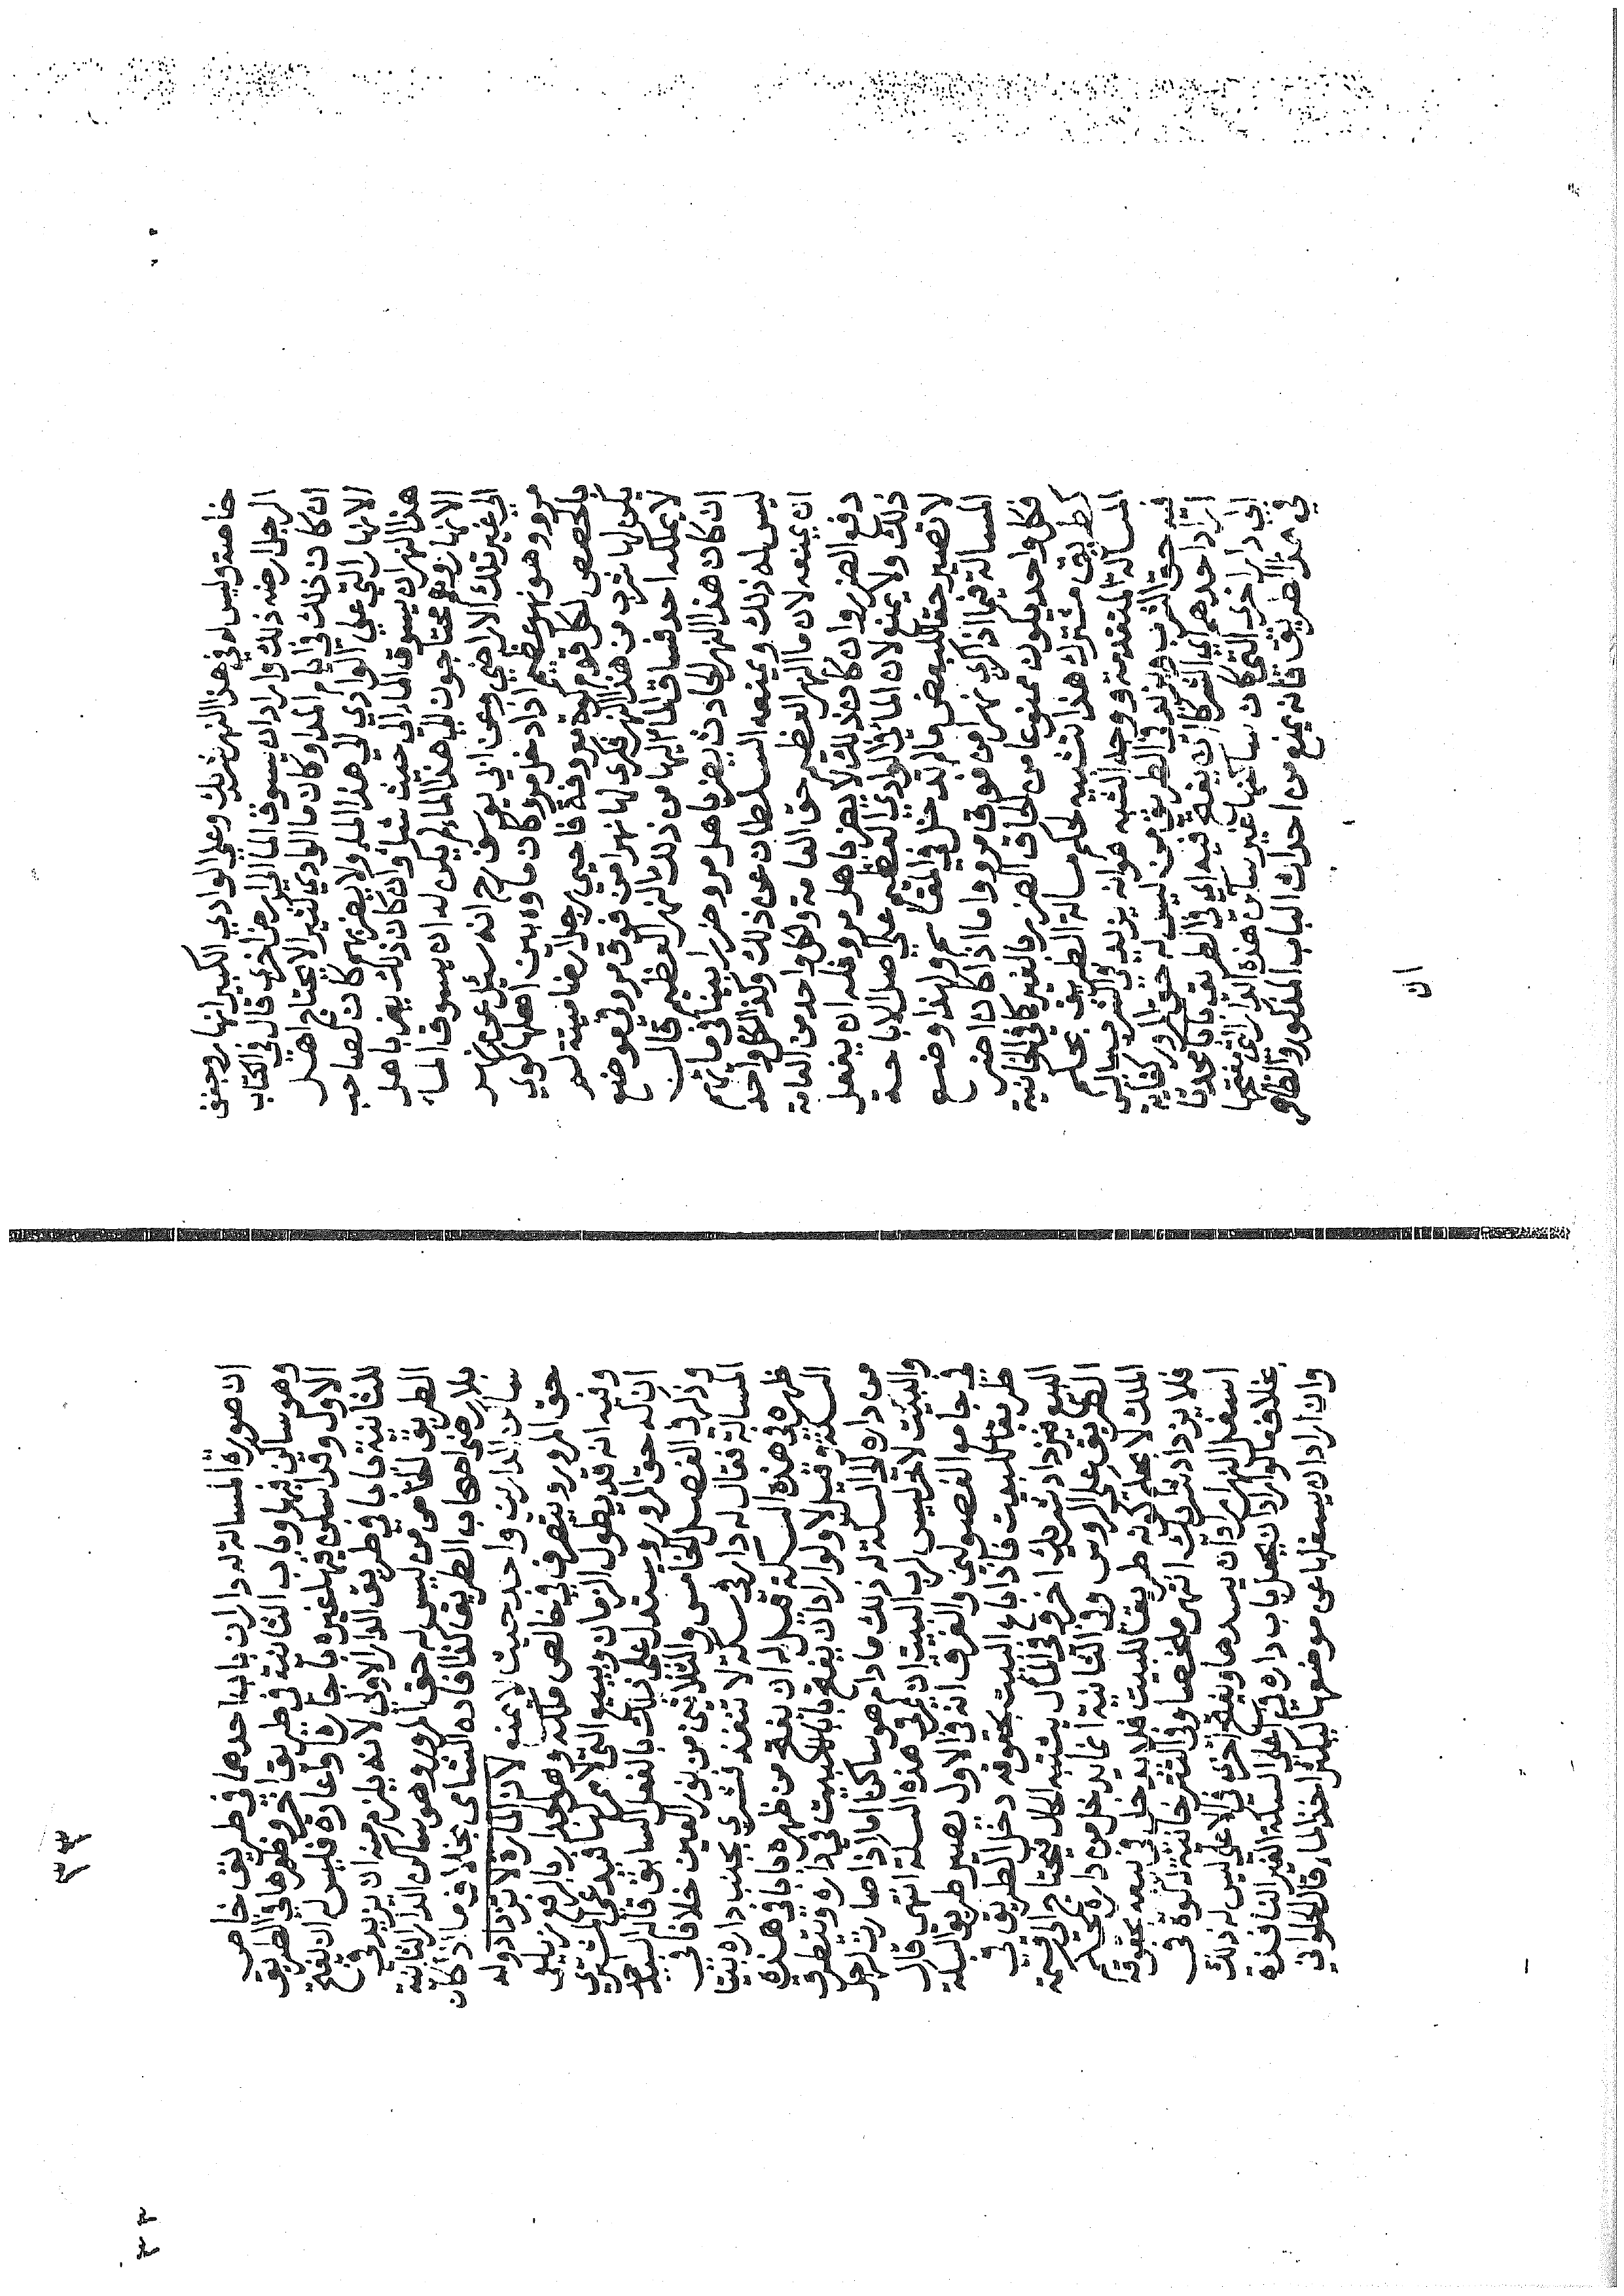 خاصة وليس له في هذا النهر شريك وعلى الوادي الكبير انهار وجفف
الرجل ارضه ذلك واراد ان يسوق الماء الى ارض اخرى قال في الكتاب
ان كان ذلك في ايام المد وكان ما الوادي كثير لا يحتاج اهل
الانهار التي على الوادي الى هذا الماء ولا يضر بهم كان لصاحب
هذا النهر ان يسوق الماء الى حيث شاء وان كان ذلك يضر باهل
الانهار وهم محتاجون الى هذا الماء لم يكن له ان يسوق الماء
الى غير تلك الاراضي وعن ابي يوسف رح انه سئل عن نهر
مرو وهو نهر عظيم اذا دخل مرو كان ماوه بين اهلها كوي
بالحصص لكل قوم كوة معروفة فاحيى رجل ارضا ميتة لم
يكن لها شرب من هذا النهر فكرى لها نهرا من فوق مرو في موضع
لا يملكه احد فساق الماء اليها من ذلك النهر العظيم قال
ان كان هذا النهر الحادث يضر باهل مرو ضررا بينا في مائهم
ليس له ذلك ويمنعه السلطان عن ذلك وكذا لكل واحد
ان يمنعه لان ما النهر العظيم حق العامة ولكل واحد من العامة
دفع الضرر وان كان ذلك لا يضر باهل مرو فله ان يفعل
ذلك ولا يمنع لان الماء في الوادي العظيم على اصل الاباحة
لا تصير حقا للبعض ما لم تدخل في المقاسم ولهذا وضع
المسالة فيما اذا كرى نهرا من فوق مرو واما اذا كان اضر
فكل واحد يكون ممنوعا من الحاق الضرر بالغير كما في الخانية
كطريق مشترك هذا تشبيه لحكم مسالة الطريق بحكم
المسالة المتقدمة ووجه الشبه هو انه يزيد في الشرب من ليس
فيه حق الشرب ويزيد في الطريق من ليس له حق المرور كفاية
اراد احدهم اي الشركا ان يفتح فيه اي في الطريق بابا محدثا
الى دار اخرى التي كان ساكنها غير ساكن هذه الدار التي مفتحها
في هذا الطريق فانه يمنع من احداث الباب المذكور والظاهر
ان
ان صورة المسالة له داران باب احدهما في طريق خاص
وهو ساكن فيها وباب الثانية في طريق اخر وظهرها في الطريق
الاول وقد اسكن فيها غيره باجارة او اعارة فليس له ان يفتح
للثانية بابا في طريق الدار الاولى لانه يلزم منه ان يزيد في
الطريق الخاص من ليس له حق المرور وهو ساكن الدار الثانية
بلا رضى اصحاب الطريق كذا افاده الشامي بخلاف ما اذا كان
ساكن الدارين واحد حيث لا يمنع لان المارة لا تزداد وله
حق المرور ويتصرف في خالص ملكه وهو الجدار بالرفع زيلعي
وفيه انه قد يطول الزمان ويبيع التي لا ممر لها فيدعي المشتري
ان له حق المرور ويستدل على ذلك بالفعل السابق قاله السيد احمد
وذكر في الفصل الخامس والثلاثين من نور العين خلافا في
المسالة فقال له دار في سكة لا تنفذ فشرى بجنب داره بيتا
ظهره في هذه السكة قيل له ان يفتح من ظهره بابا في هذه
السكة وقيل لا ولو اراد ان يفتح بابا للبيت في داره ويتطرق
من داره الى السكة له ذلك ما دام هو ساكنا اما اذا صارت لرجل
والبيت لاخر ليس لرب البيت ان يمر في هذه السكة انتهى قال
في جامع الفصولين والفرق انه في الاول يصير طريق السكة
طريقا للبيت فاذا باع البيت بحقوقه دخل الطريق في
البيع فيزداد شريك اخر في المآل يشتبه الحال فيحتاج الى قسمة
الطريق على الروس وفي الثانية انما يدخل من داره بحكم
الملك لا بحكم كونه طريقا للبيت فلا يدخل في بيعه بحقوقه
فلا يزداد شريك انتهى ملخصا وفي التتر خانية لو كوة في
اسفل النهر اراد ان يسدها ويفتح اخرى في الاعلى ليس له ذلك
بخلاف ما لو اراد ان يجعل باب داره في اعلى السكة الغير النافذة
وان اراد ان يسفلها عن موضعها ليكثر اخذ الماء قال الحلواني